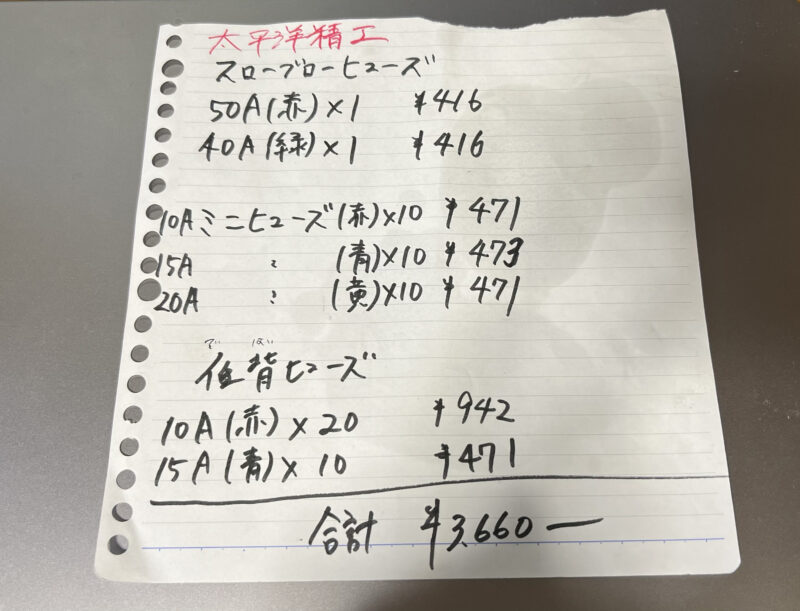 太平洋精工
スローブローヒューズ
50A(赤)×1 ¥416
40A(緑)×1 ¥416
10Aミニヒューズ(赤)×10 ¥471
15A 〃 (青)×10 ¥473
20A 〃 (黄)×10 ¥471
てい はい
低背ヒューズ
10A(赤)×20 ¥942
15A(青)×10 ¥471
合計 ¥3,660ー